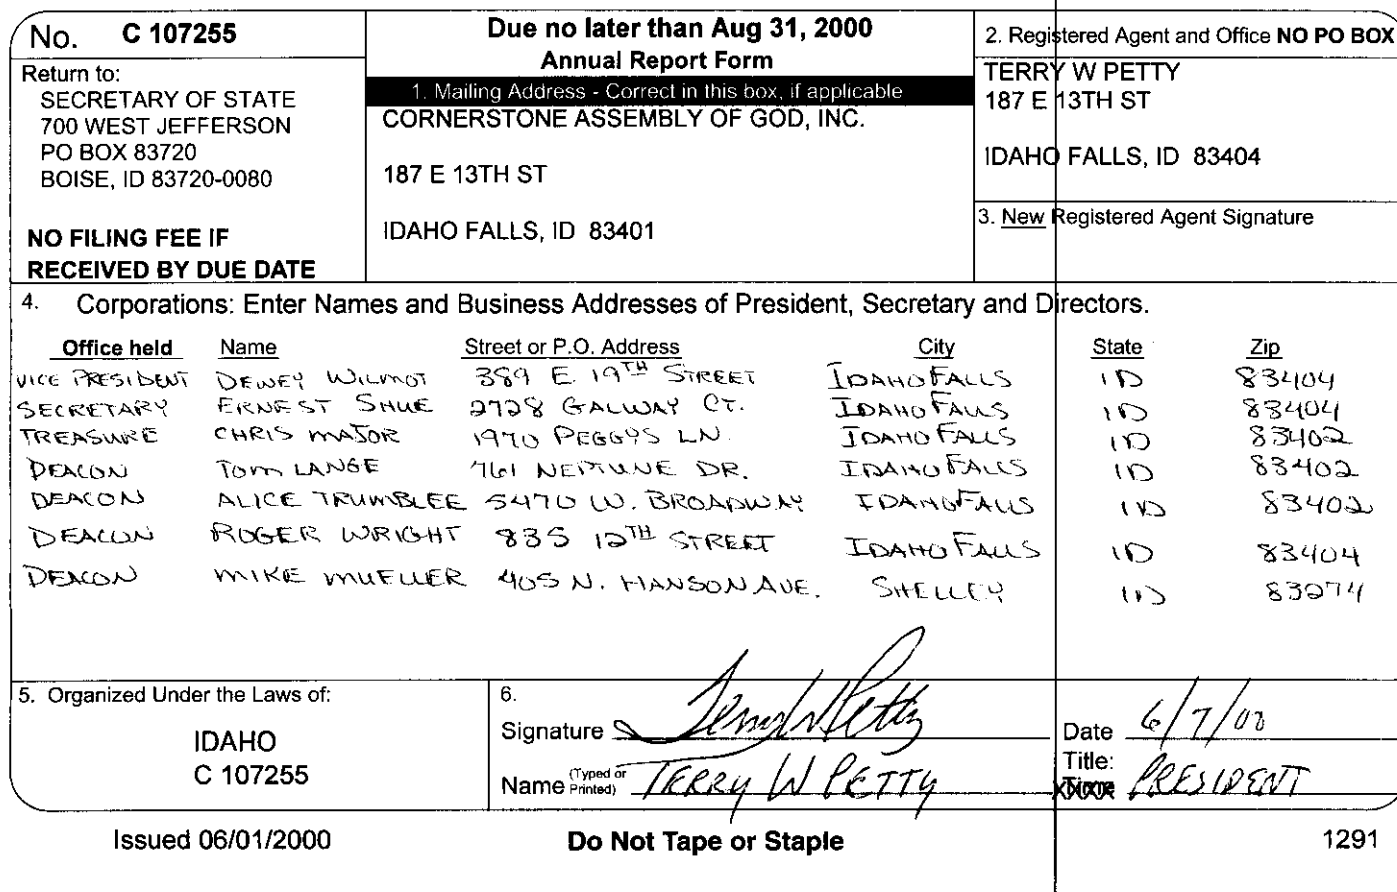 No. C 107255
Return to:
SECRETARY OF STATE
700 WEST JEFFERSON
PO BOX 83720
BOISE, ID 83720-0080
NO FILING FEE IF
RECEIVED BY DUE DATE
Due no later than Aug 31, 2000
Annual Report Form
1. Mailing Address - Correct in this box, if applicable
CORNERSTONE ASSEMBLY OF GOD, INC.
187 E 13TH ST
IDAHO FALLS, ID 83401
2. Registered Agent and Office NO PO BOX
TERRY W PETTY
187 E 13TH ST
IDAHO FALLS, ID 83404
3. New Registered Agent Signature
4. Corporations: Enter Names and Business Addresses of President, Secretary and Directors.
Office held Name Street or P.O. Address City State Zip
VICE PRESIDENT DEWEY WILMOT 389 E. 19TH STREET IDAHO FALLS ID 83404
SECRETARY ERNEST SHUE 2728 GALWAY CT. IDAHO FALLS ID 83404
TREASURE CHRIS MAJOR 1970 PEGGYS LN. IDAHO FALLS ID 83402
DEACON TOM LANGE 761 NEPTUNE DR. IDAHO FALLS ID 83402
DEACON ALICE TRUMBLEE 5470 W. BROADWAY IDAHO FALLS ID 83402
DEACON ROGER WRIGHT 835 12TH STREET IDAHO FALLS ID 83404
DEACON MIKE MUELLER 405 N. HANSON AVE. SHELLEY ID 83274
5. Organized Under the Laws of:
IDAHO
C 107255
6.
Signature Terry W Petty Date 6/7/00
Name (Typed or Printed) TERRY W PETTY Title: PRESIDENT
Issued 06/01/2000 Do Not Tape or Staple 1291